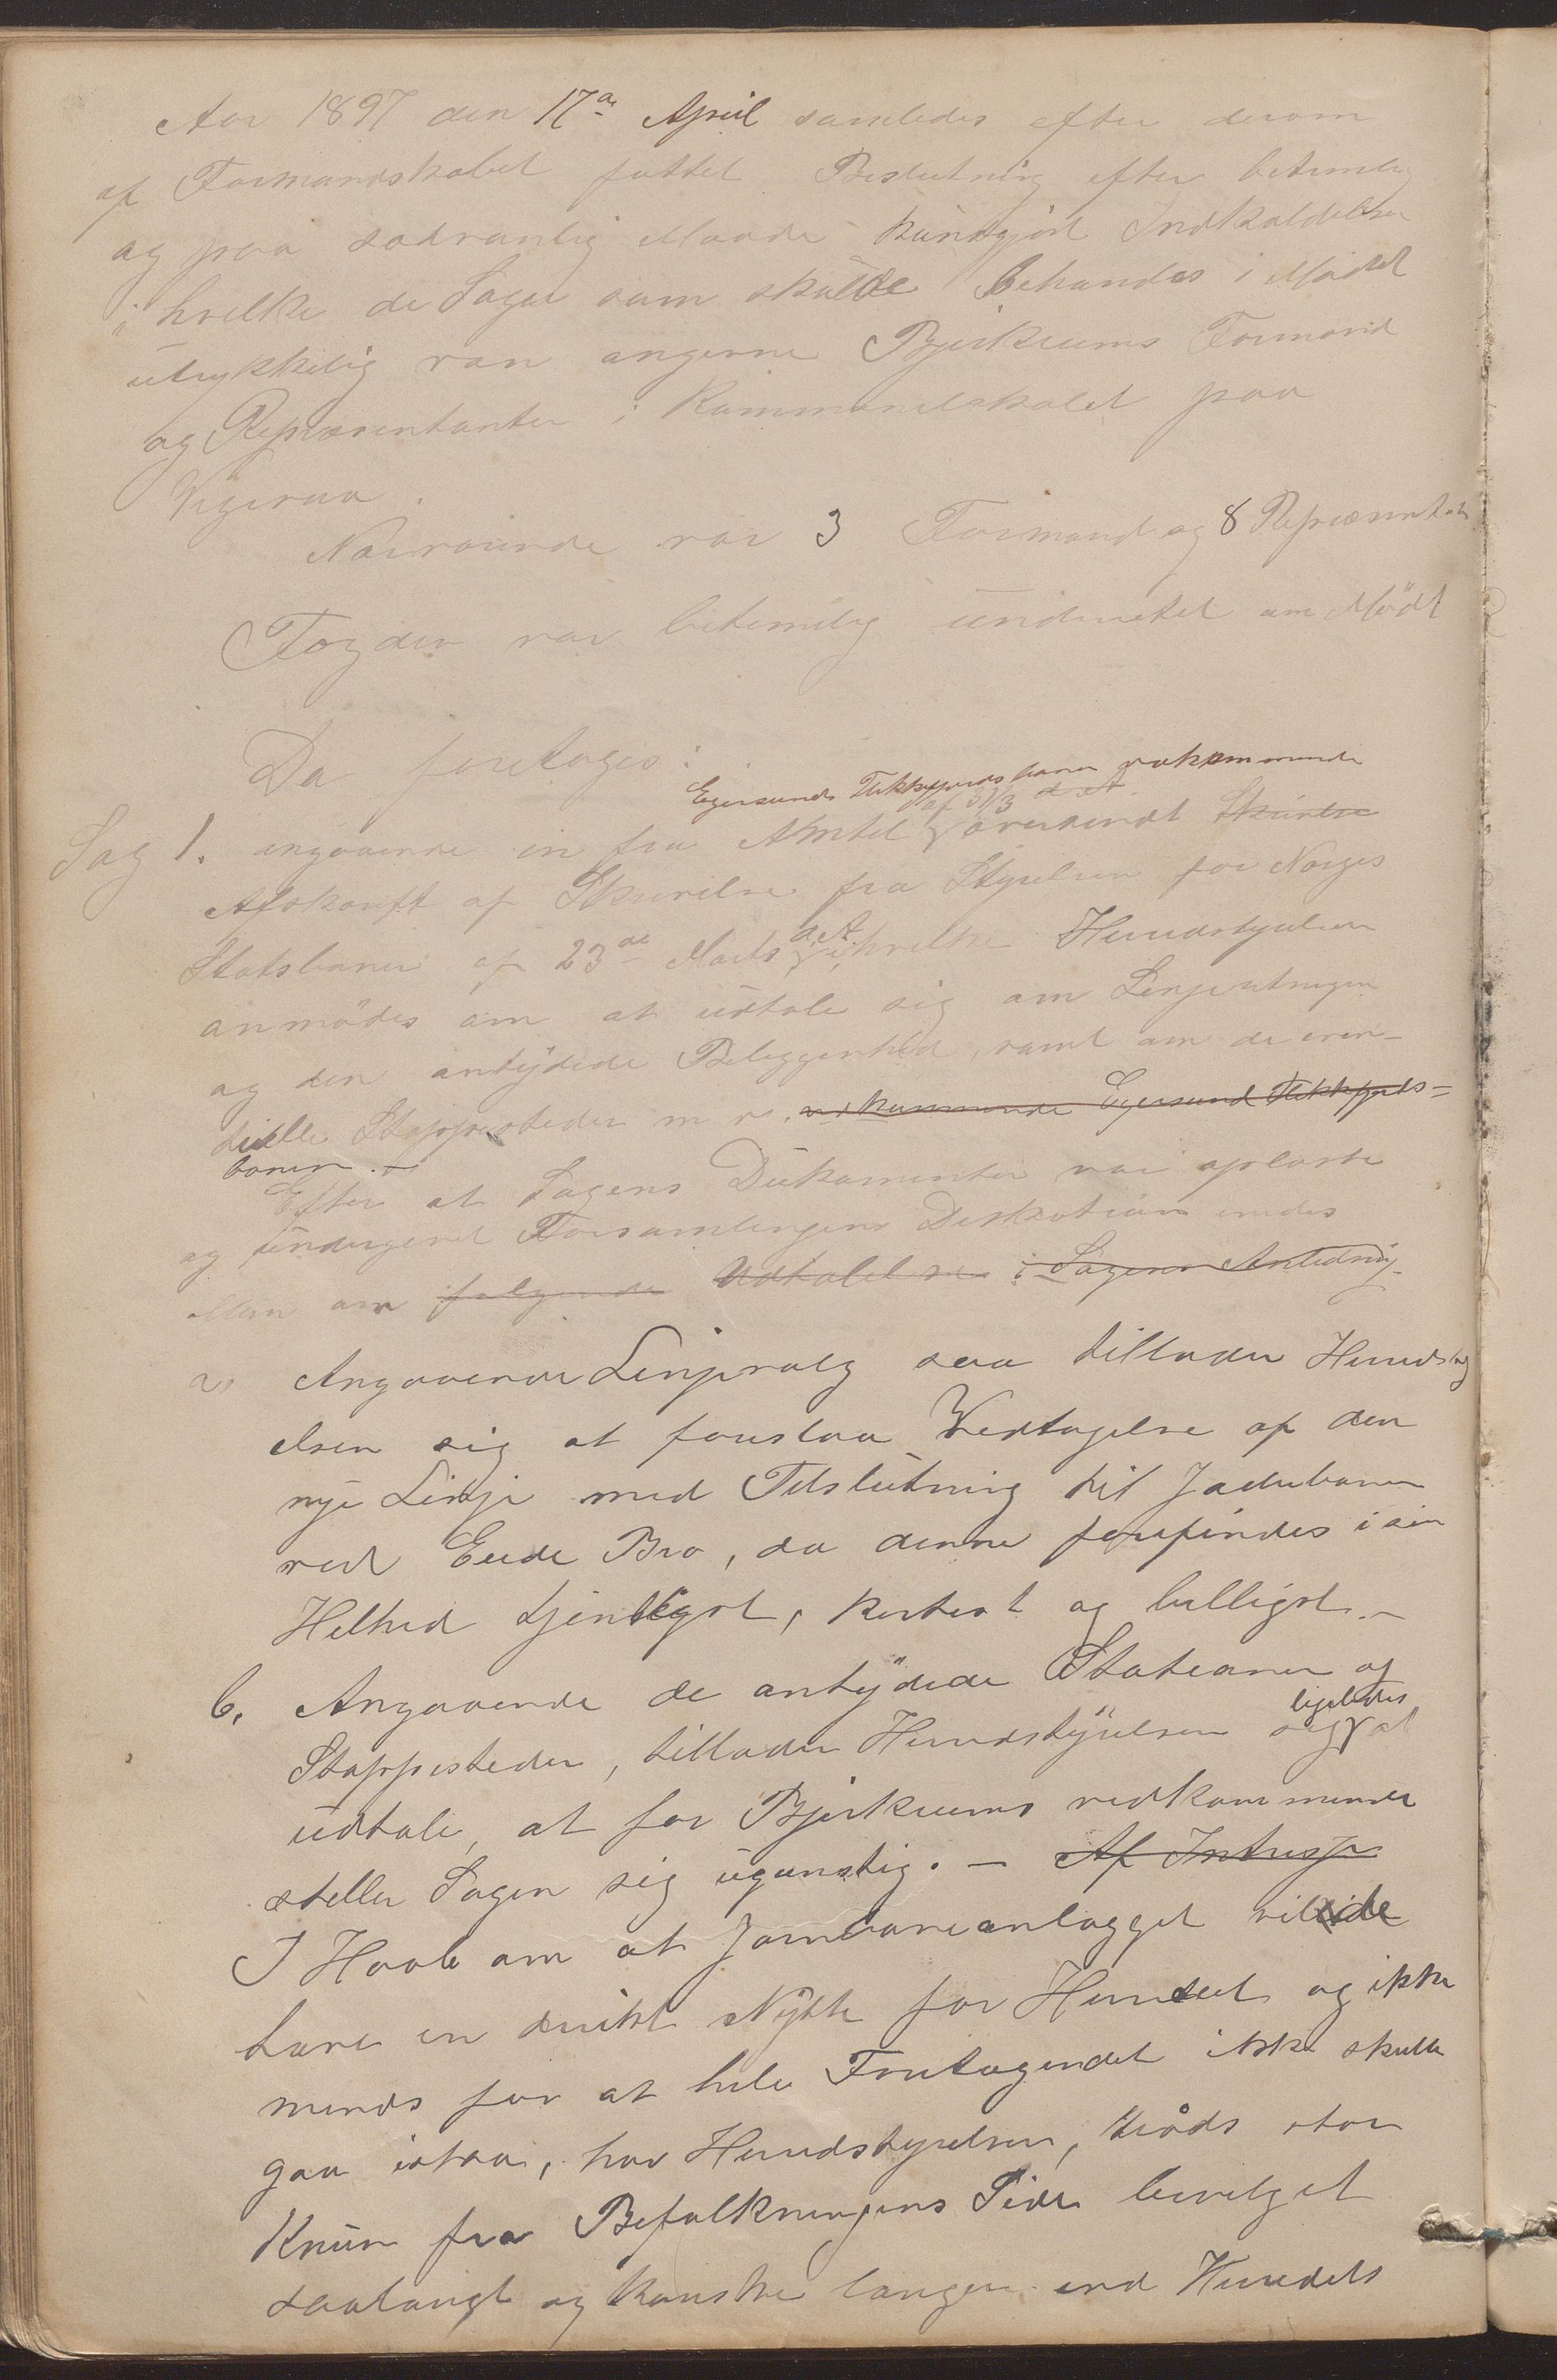 Aar 1897 den 17de April samledes efter derom
af Formandskabet fattet Beslutning efter betimelig
og paa sædvanlig Maade kundgjort Indkaldelse
i hvilke de Sager som skulde behandles i Mødet
utrykkelig var angivne Bjerkreims Formænd
og Repræsentanter i Kommunelokalet paa
Vigeraa.
Nærværende var 3 Formænd og 8 Repræsentat
Fogden var betimelig underrettet om Mødet
Da foretoges:
Egersunds Flekkefjords banen vedkommende
af 31/3 d. A.
Sag 1. angaaende en fra Amtet oversendt Skrivelse
Afskrift af Skrivelse fra Styrelsen for Norges
Statsbaner af 23de Marts d. A. i hvilke Herredstyrelsen
anmodes om at udtale sig om Linjeretningen
og den antydede Beliggenhed, samt om de even-
tuelle Stoppesteder m. v. vedkommende Egersund Flekkefjords-
banen. –
Efter at Sagens Dokumenter var oplæste
og undergivet Forsamlingens Diskotion enedes
Man om følgende Udtalelse i Sagens Anledning
a. Angaaende Linjevalg saa tillader Herredsty
elsen sig at foreslaa Vedtagelse af den
nye Linje med Tilslutning til Jæderbanen
ved Eide Bro, da denne forefindes i sin
Helhed tjenligst, kortest og billigst. –
b. Angaaende de antydede Stationer og
Stoppesteder, tillader Herredstyrelsen sig ligeledes at
udtale, at for Bjerkreims vedkommende
steller Sagen sig ugunstig. – Af Intresse
I Haab om at Jernbaneanlægget vilde
være en direkte Nytte for Herredet og ikke
minds for at hele Foretagendet ikke skulle
gaa istaa, har Herredstyrelsen, trods stor
Knur fra Befolkningens Side bevilget
saalangt og kanske længere end Herredets